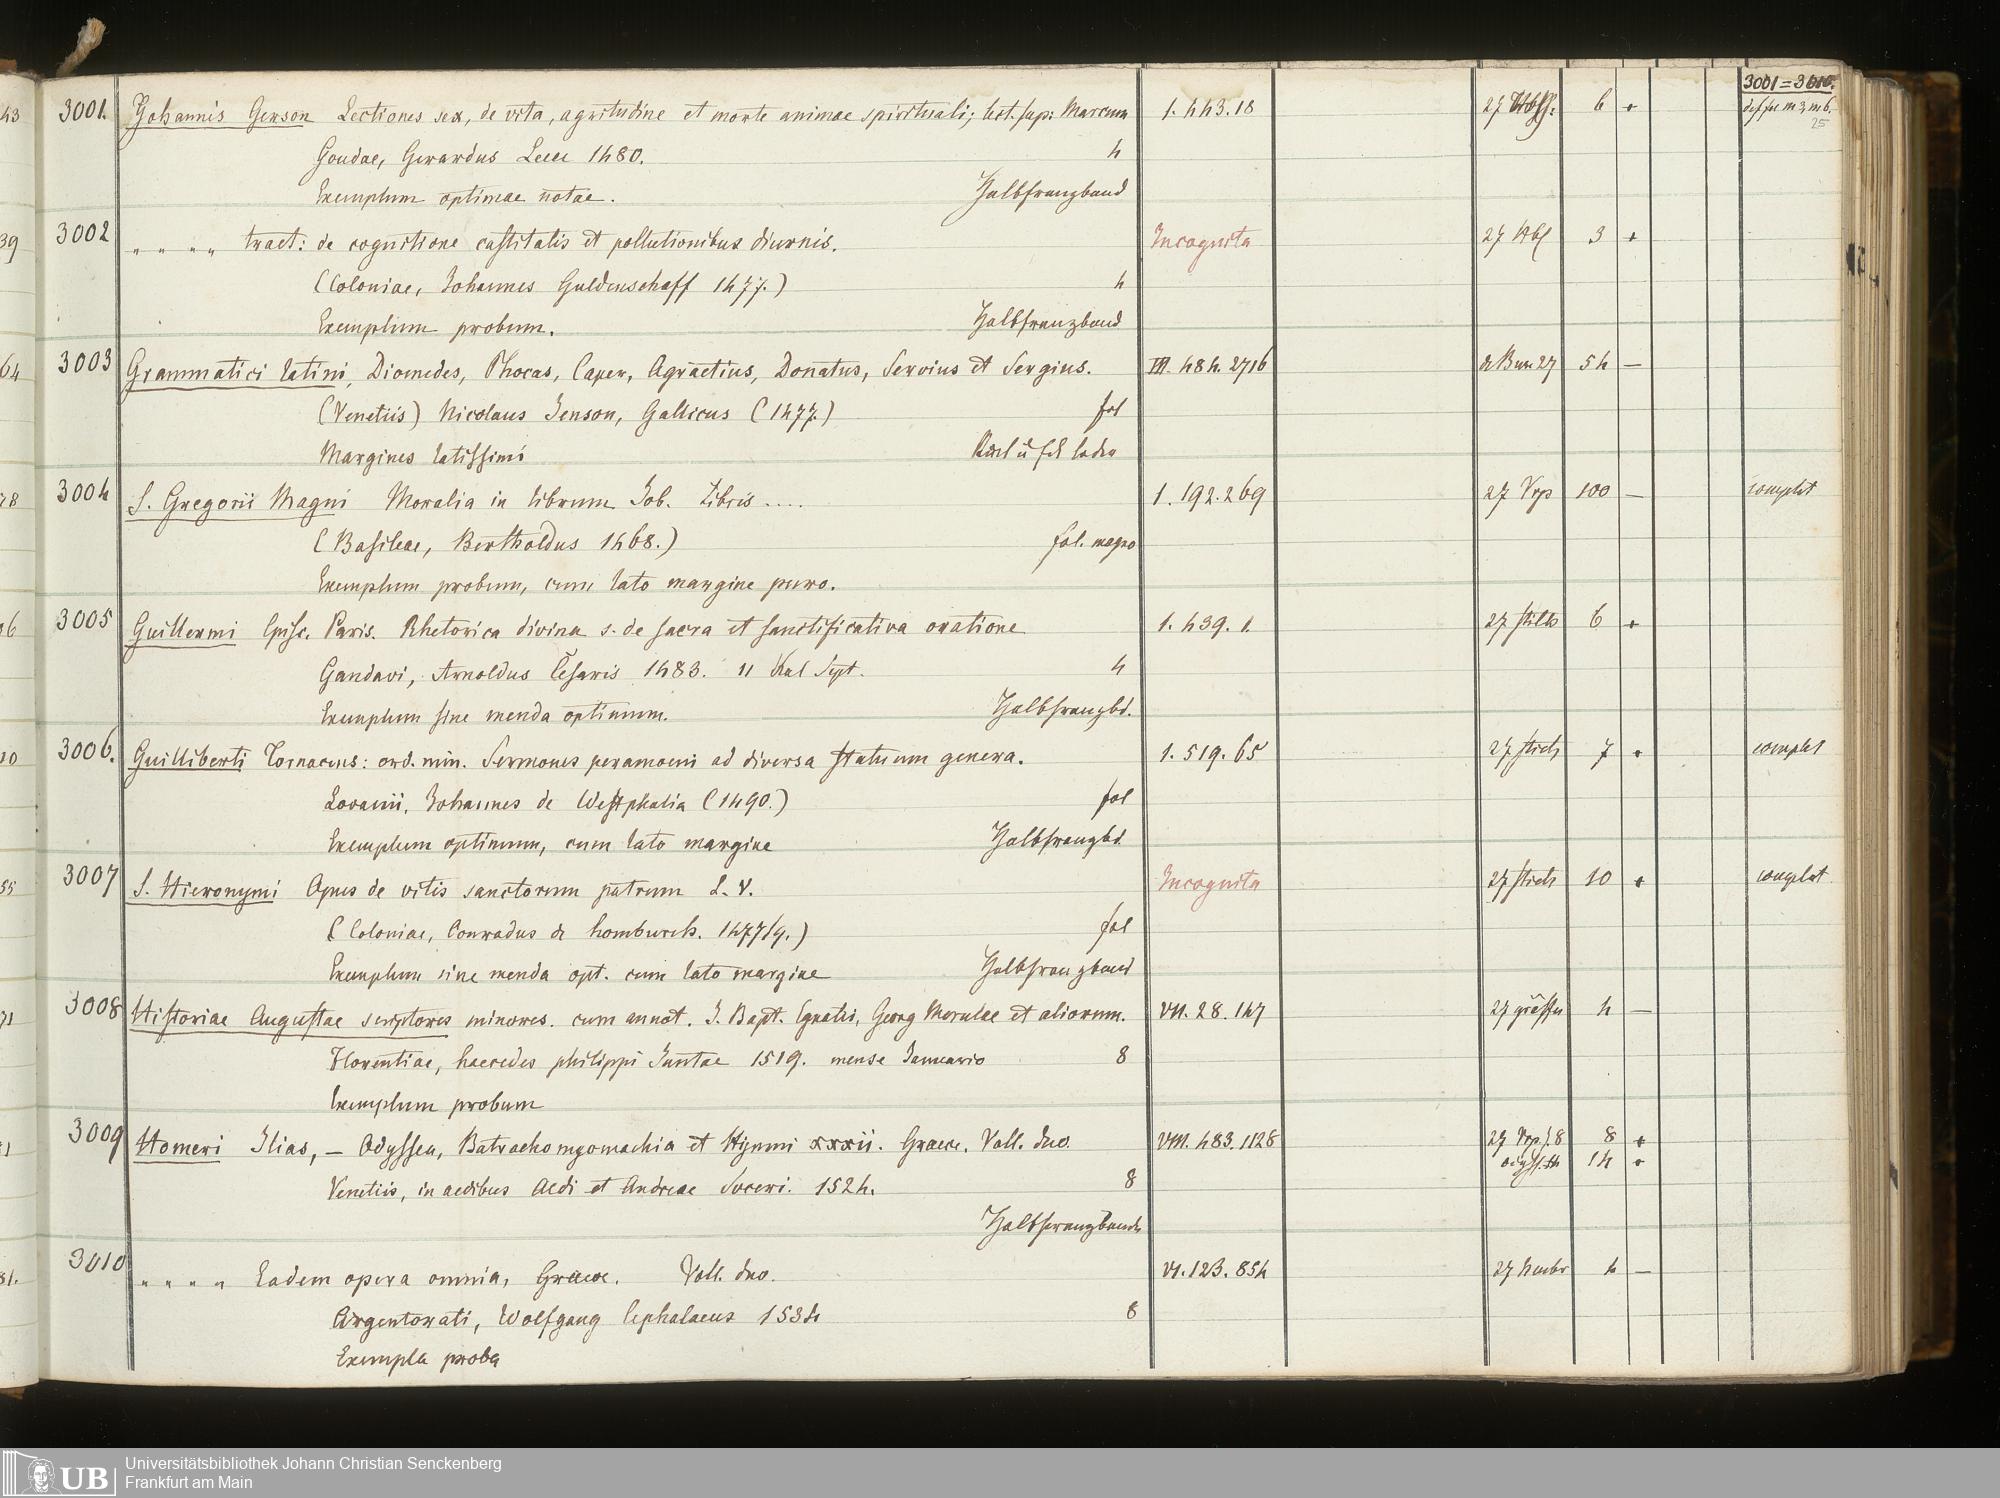 3001=3010.
3001. Johannis Gerson Lectiones sex, de vita, aegritudine et morte animae spirituali; lect. sup: Marcum 1. 443. 18 27 6 +
Goudae, Gerardus Leeu 1480. 4
Exemplum optimae notae. Halbfranzband
3002 " " " " tract: de cognitione castitatis et pollutionibus diurnis. Incognita 27 3 +
(Coloniae, Johannes Guldenschaff 1477.) 4
Exemplum probum. Halbfranzband
3003 Grammatici latini, Diomedes, Phocas, Caper, Agraetius, Donatus, Servius et Sergius. III. 484. 2716 27 54 —
(Venetiis) Nicolaus Jenson, Gallicus (1477.) fol
Margines latissimi
3004 S. Gregorii Magni Moralia in librum Job. Libris .... 1. 192. 269 27 Vrp 100 — complet
(Basileae, Bertholdus 1468.) fol. magno
Exemplum probum, cum lato margine puro.
3005 Guillermi Episc. Paris. Rhetorica divina s. de sacra et sanctificativa oratione 1. 439. 1. 27 6 +
Gandavi, Arnoldus Cesaris 1483. 11 Kal Sept. 4
Exemplum sine menda optimum. Halbfranzbd.
3006. Guilliberti Tornacens: ord. min. Sermones peramoeni ad diversa statuum genera. 1. 519. 65 27 7 + complet
Lovanii, Johannes de Westphalia (1490.) fol
Exemplum optimum, cum lato margine Halbfranzbd.
3007 S. Hieronymi Opus de vitis sanctorum patrum L. V. Incognita 27 10 + complet
(Coloniae, Conradus de homburch. 1477/9.) fol
Exemplum sine menda opt. cum lato margine Halbfranzband
3008 Historiae Augustae scriptores minores. cum annot. J. Bapt. Egnatii, Georg Merulae et aliorum. VII. 28. 147 27 4 —
Florentiae, haeredes philippi Juntae 1519. mense Januario 8
Exemplum probum
3009 Homeri Ilias, — Odyssea, Batrachomyomachia et Hymni xxxii. Graece. Voll. duo. VIII. 483. 1128 27 8 +
14 +
Venetiis, in aedibus Aldi et Andreae Soceri. 1524. 8
Halbfranzbände
3010 " " " " Eadem opera omnia, Graece. Voll. duo. VI. 123. 854 27 4 —
Argentorati, Wolfgang Cephalaeus 1534 8
Exempla proba
UB Universitätsbibliothek Johann Christian Senckenberg
Frankfurt am Main